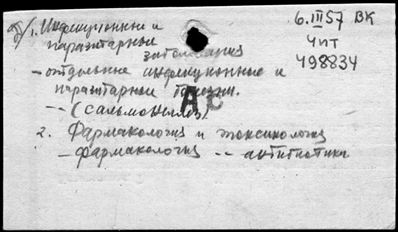 1. Инфекционные и
паразитарные
заболевания
– отдельные инфекционные и
паразитарные болезни.
-- (сальмонеллез).
2. Фармакология и токсикология
– фармакология -- антибиотики
6.III57 ВК
Чпт
498834
АС